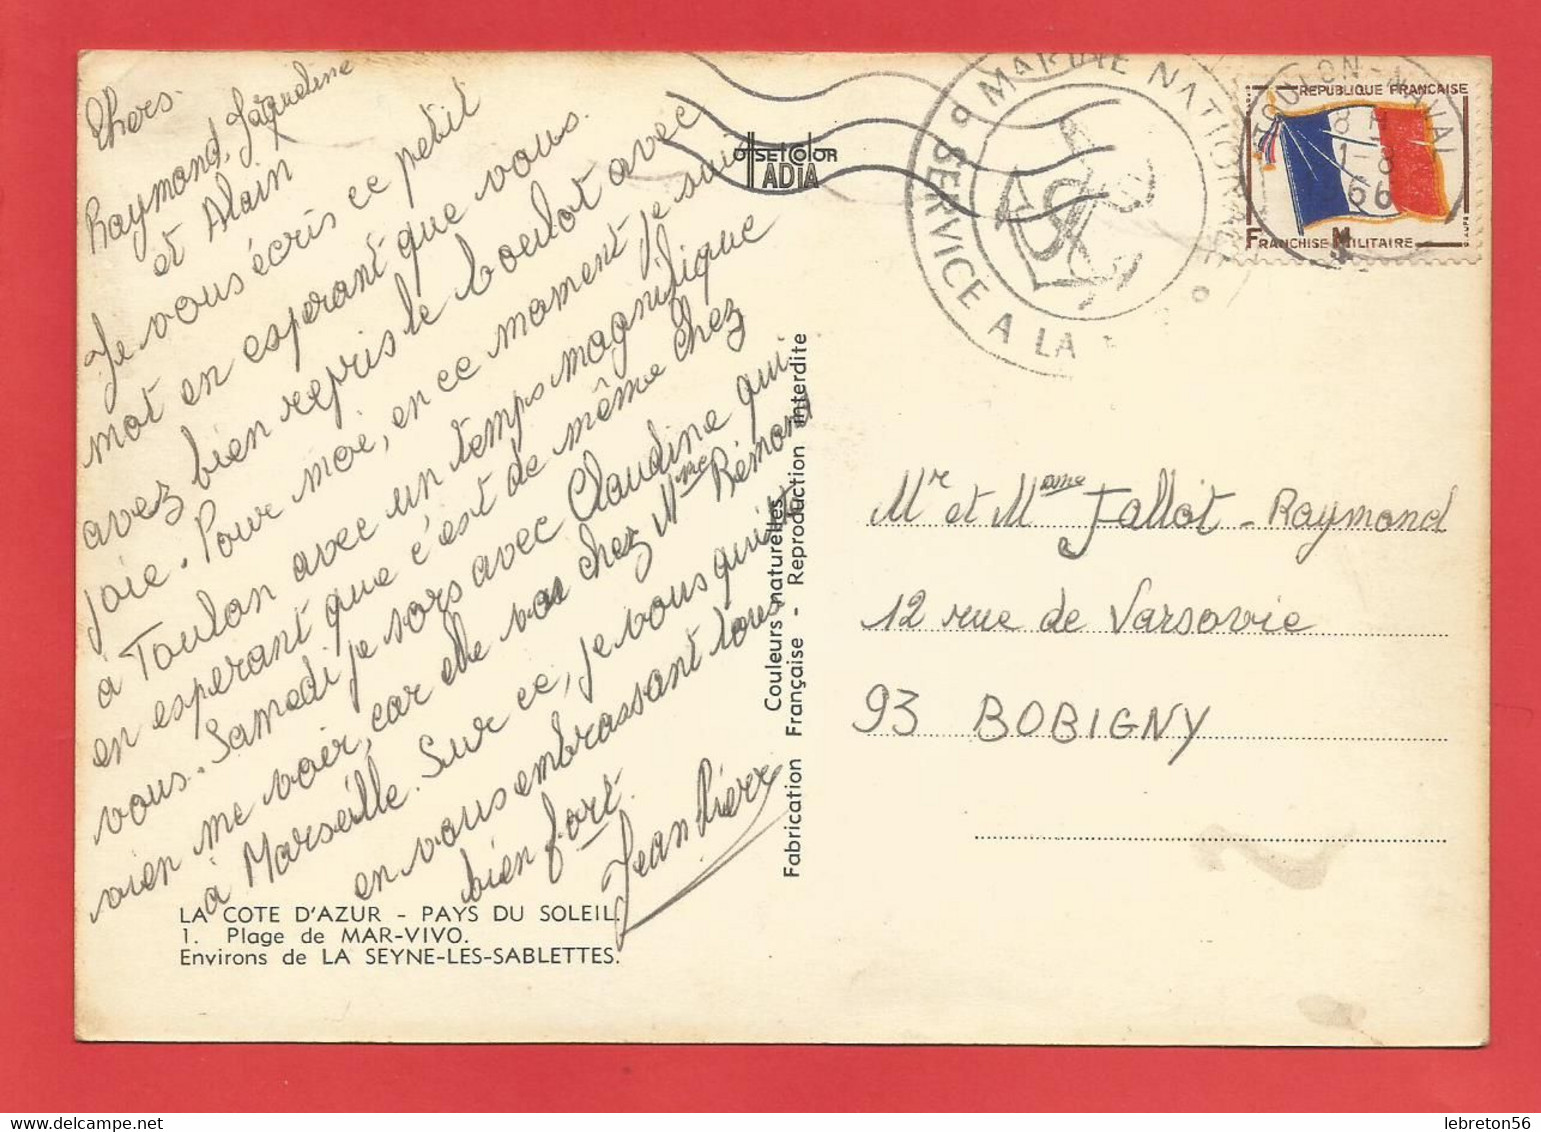 Chers
Raymond, Jaqueline
et Alain
Je vous écris ce petit
mot en esperant que vous
avez bien repris le boulot avec
joie. Pour moi, en ce moment je suis
à Toulon avec un temps magnifique
en esperant que c'est de même chez
vous. Samedi je sors avec Claudine qui
vien me voir, car elle vas chez Mme Rémony
à Marseille. Sur ce, je vous quitte
en vous embrassant tous
bien fort.
Jean Pierre
LA COTE D'AZUR - PAYS DU SOLEIL.
1. Plage de MAR-VIVO.
Environs de LA SEYNE-LES-SABLETTES.
OFFSETCOLOR
ADIA
Couleurs naturelles
Fabrication Française - Reproduction interdite
MARINE NATIONALE
SERVICE A LA
TOULON-NAVAL
8 H
1-8
66
REPUBLIQUE FRANÇAISE
FM
FRANCHISE MILITAIRE
Mr et Mme Fallot-Raymond
12 rue de Varsovie
93 BOBIGNY
lebreton56